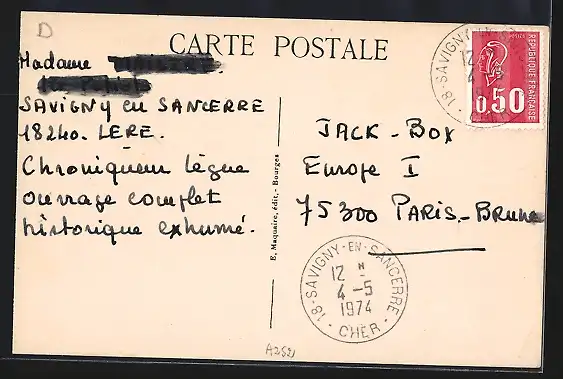 D
CARTE POSTALE
Madame
SAVIGNY en SANCERRE
18240. LERE.
Chroniqueur lègue
ouvrage complet
historique exhumé.
E. Maquaire, édit. - Bourges
JACK - Box
Europe I
75300 PARIS - Brune
POSTES
REPUBLIQUE FRANÇAISE
0,50
18 - SAVIGNY
12
4
18 - SAVIGNY-EN-SANCERRE -
12 H
4 - 5
1974
CHER